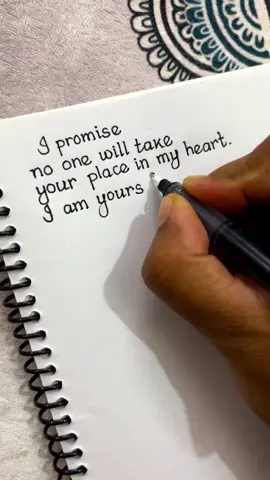 I promise
no one will take
your place in my heart.
I am yours